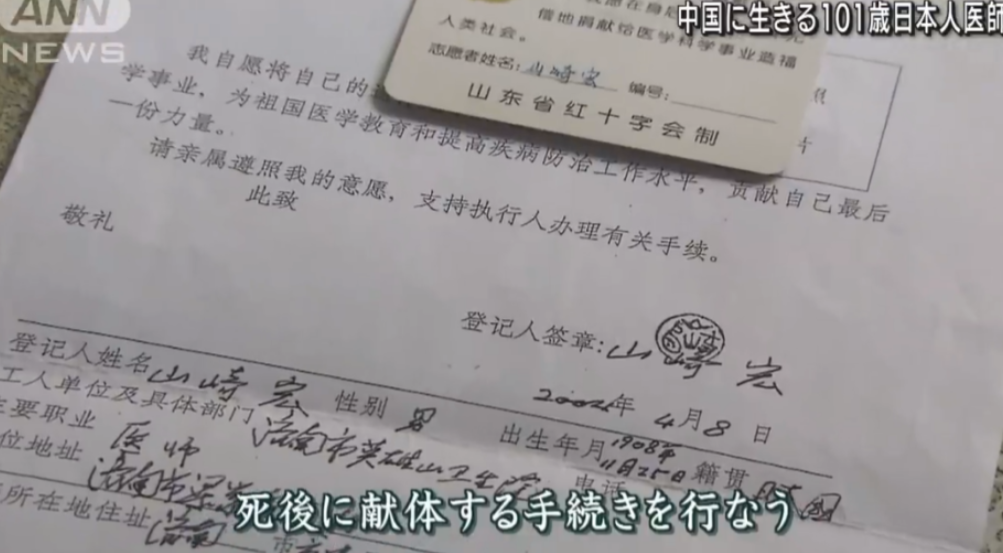 ANN
NEWS
中国に生きる101歳日本人医師
借地捐献给医学科学事业造福
人类社会。
志愿者姓名:山崎宏 编号:
山东省红十字会制
我自愿将自己的
学事业，为祖国医学教育和提高疾病防治工作水平，贡献自己最后
一份力量。
请亲属遵照我的意愿，支持执行人办理有关手续。
此致
敬礼
登记人签章:山崎宏
年4月8日
登记人姓名 山崎宏 性别 男 出生年月 1908年11月25日 籍贯
工人单位及具体部门 济南市英雄山卫生 电话
主要职业 医师
位地址 济南市
所在地住址 济南 市
死後に献体する手続きを行なう